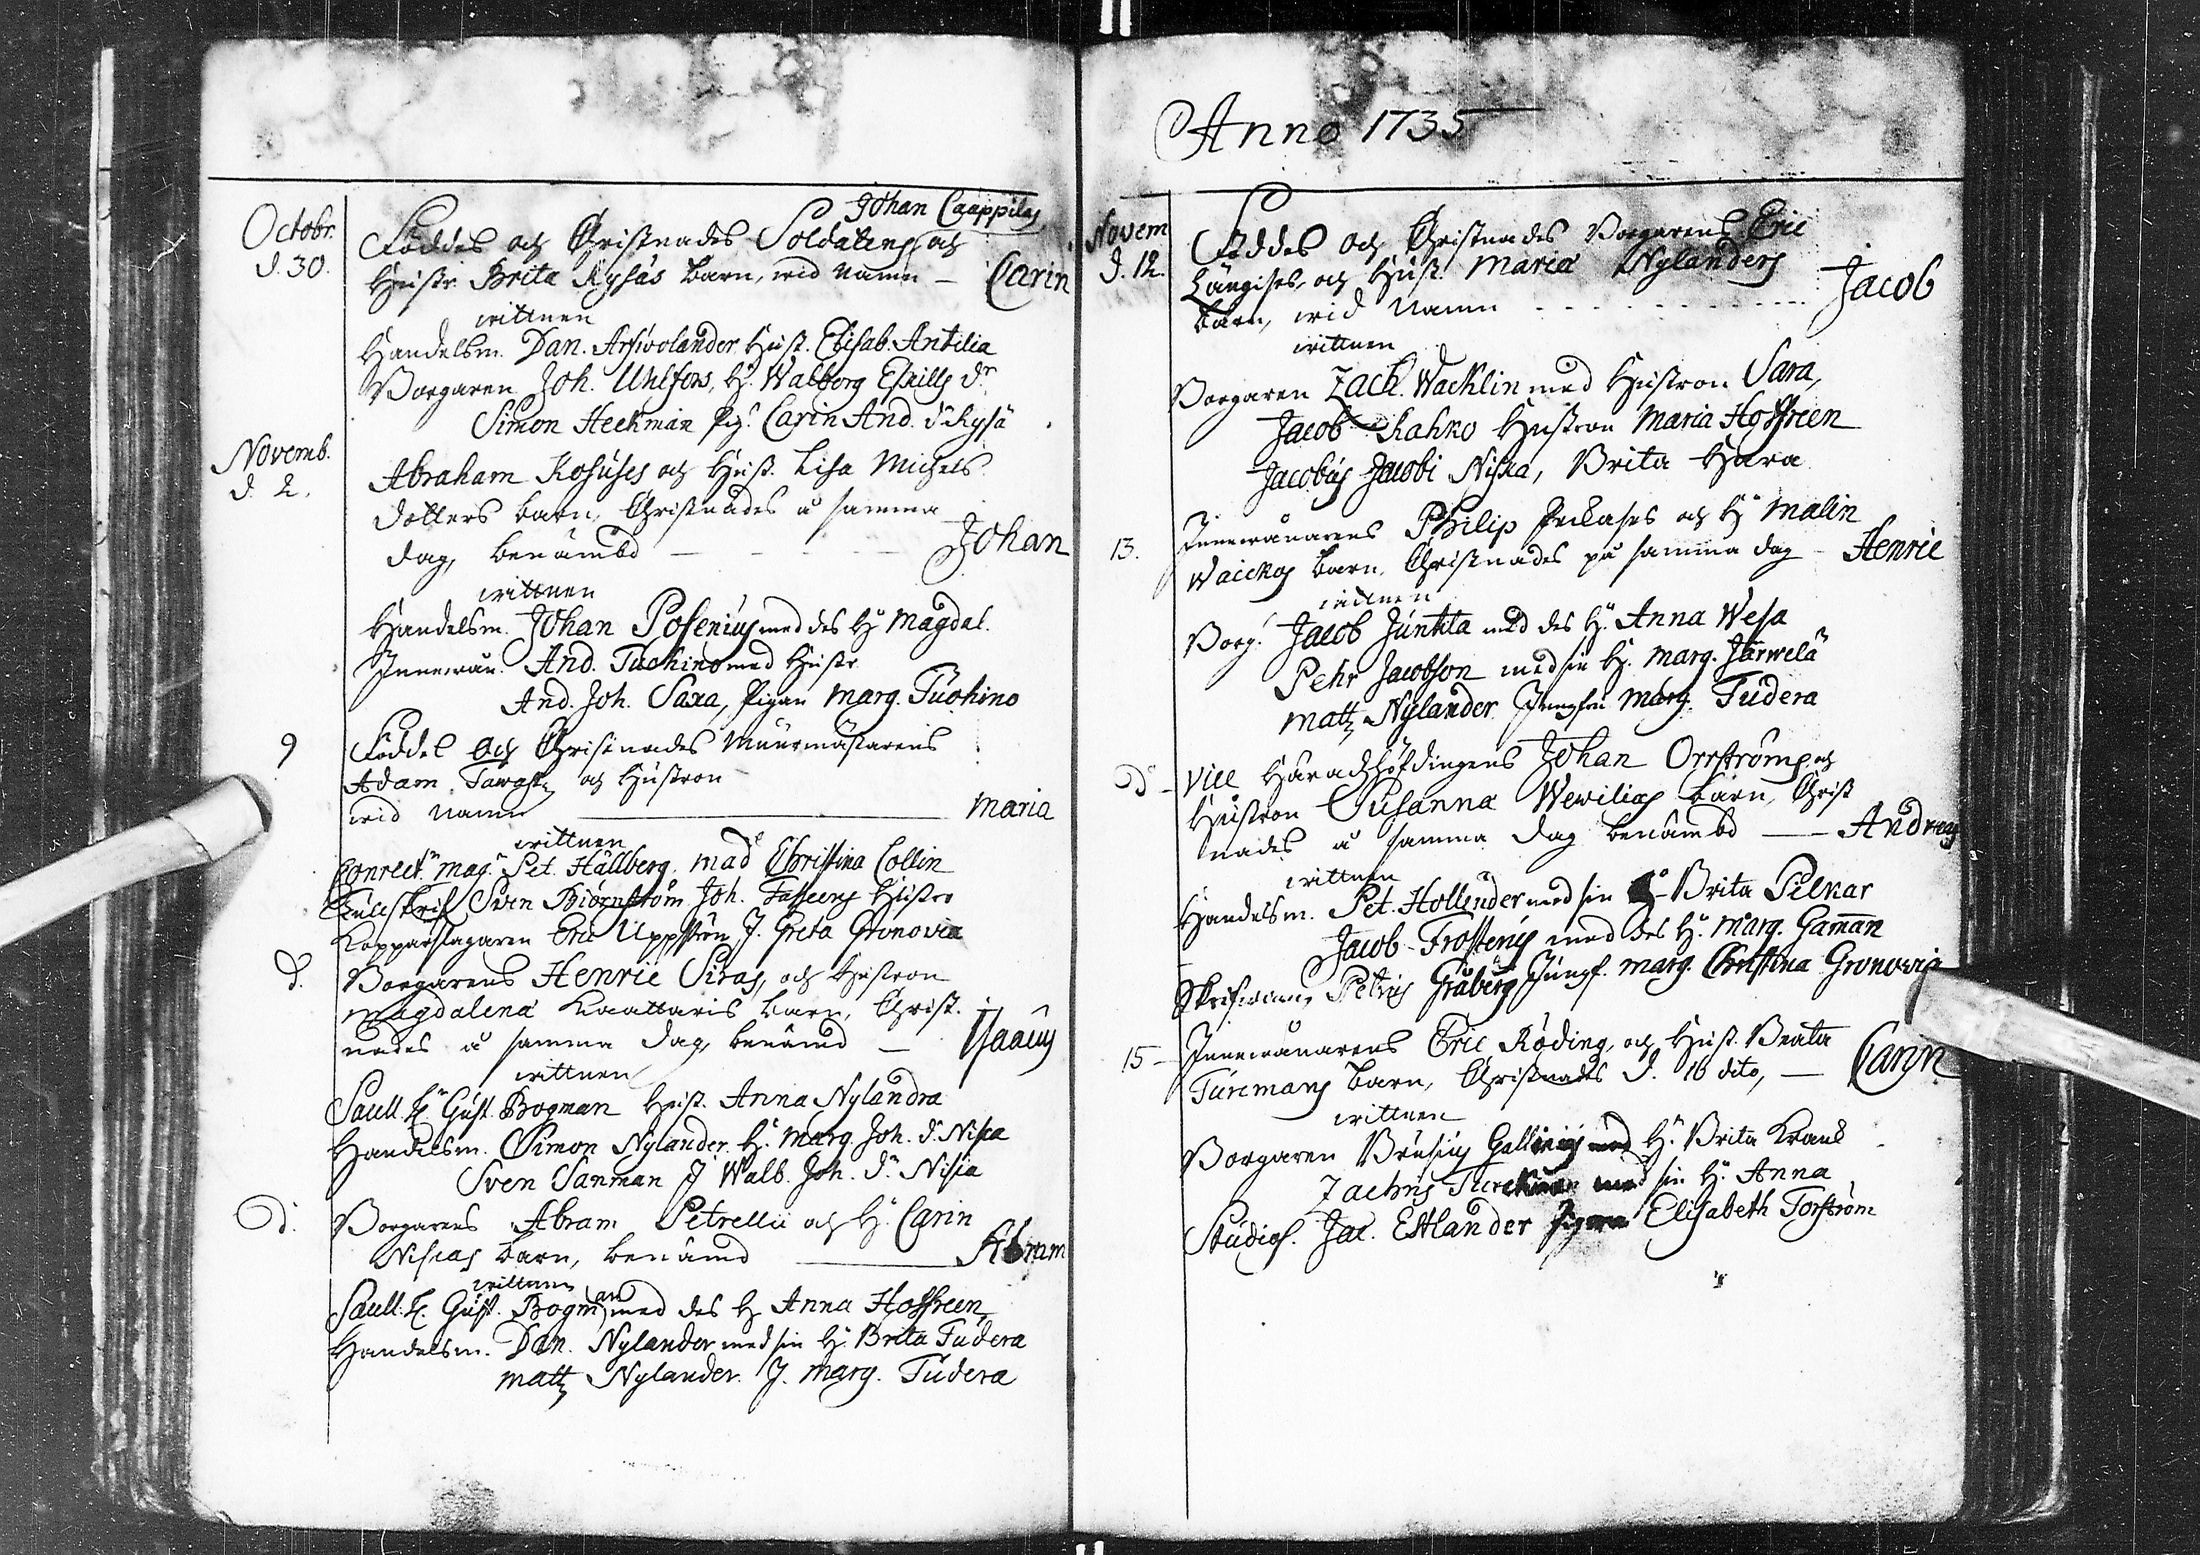 Octobr. d. 30.
Johan Caappilas
Föddes och Christnades Soldatens och
Hustr. Brita Rysäs barn, wid namn — Carin
wittnen
Handelsm. Dan. Arfwolander Hust. Elisab. Antilia
Borgaren Joh. Uhlfors, H. Walborg Eskills dr
Simon Heckman Pig. Carin And. dr Rysä
Novemb. d. 2.
Abraham Kosuses och Hust. Lisa Michels
dotters barn, Christnades å samma
dag, benämbd — Johan
wittnen
Handelsm. Johan Posenius med des H. Magdal.
Innewån. And. Tuohino med Hustr
And. Joh. Saxa, Pigan Marg. Tuohino
9
Föddes och Christnades Muurmästarens
Adam Tawast och Hustron
wid namn — Maria
wittnen
Conrect. Mag. Pet. Hällberg, Mad. Christina Collin
Tullskrif. Sven Biörnström Joh. Hustro
Kopparslagaren Eric Uppström J. Greta Gronovia
d.
Borgarens Henric Siras, och Hustron
Magdalena Kaattaris barn, Christ.
nades å samma dag, benämd — Isaacus
wittnen
Gust. Bogman Hust. Anna Nylandra
Handelsm. Simon Nylander H. Marg. Joh. d. Nisca
Sven Sanman J Walb. Joh. dr Nisca
d.
Borgarens Abram Petrellii och H. Carin
Niscas barn, benämd — Abram
wittnen
Gust. Bogman med des H Anna Hoffreen,
Handelsm. Dan. Nylander med sin H. Brita Tudera
Matts Nylander. J. Marg. Tudera
Anno 1735
Novem d. 12.
Föddes och Christnades Borgarens Eric
Längises, och Hust. Maria Nylanders
barn, wid namn - - - Jacob
wittnen
Borgaren Zach. Wacklin med Hustron Sara,
Jacob Rahko Hustron Maria Hoffreen
Jacobus Jacobi Niska, Brita Hara
13.
Innewånarens Philip och H. Malin
Waickos barn, Christnades på samma dag - Henric
wittnen
Borg. Jacob Juntila med des H. Anna Wesa
Pehr Jacobson med sin H. Marg. Järwelä
Matts Nylander Jungfru Marg. Tudera
d -
Vice Häradzhöfdingens Johan Orrströms och
Hustron Susanna Wewilias barn, Christ
nades å samma dag benämbd — Andreas
wittnen
Handelsm. Pet. Hollender med sin Brita Pelkar
Jacob Frosterus med des H. Marg. Gaman
Petrus Gråberg Jungf. Marg. Christina Gronovia
15 -
Innewånarens Eric Röding, och Hust. Beata
Turcmans barn, Christnades d. 16 dito, — Carin
wittnen
Borgaren Brusius med H. Brita Krank
Zachris med sin H. Anna
Studios. Jac. Estlander Elisabeth Torström